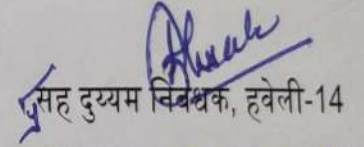 सह दुय्यम निबंधक, हवेली-14